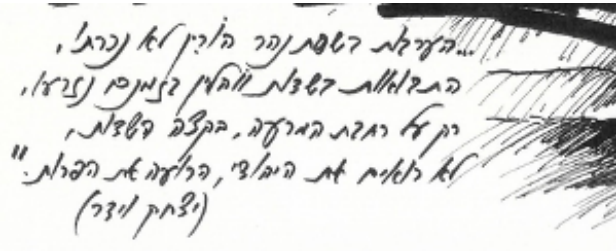 ...הערבות בשפת נהר הורין לא נכרתו,
התבואות בשדות וואהלין בזמנם נזרעו,
רק על רחבת המרעה, בקצה השדות,
לא רואים את היהודי, הרועה את הפרות."
(יצחק וידר)